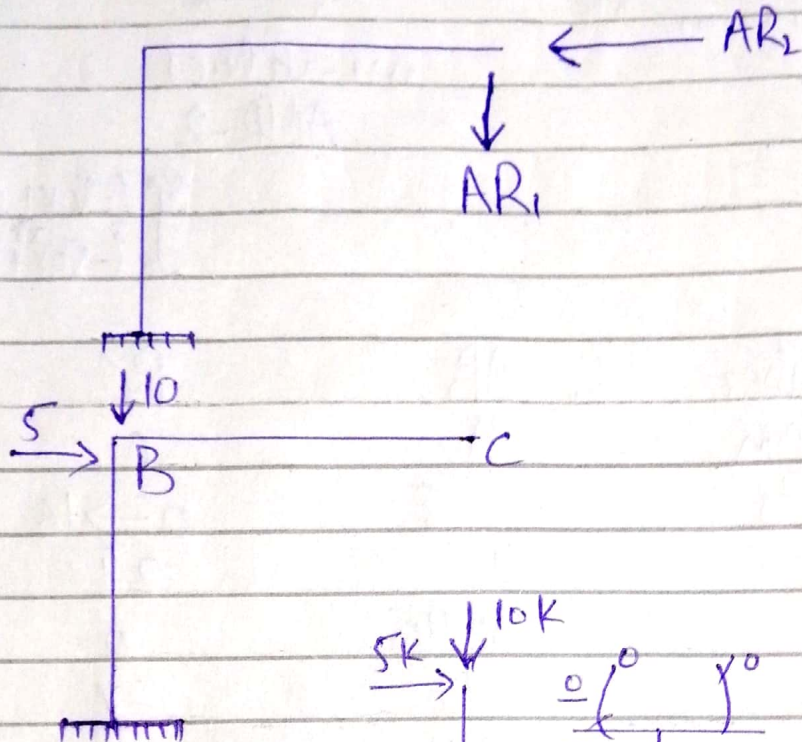 AR₂
AR₁
10
5
B
C
10K
5K
0
0
0